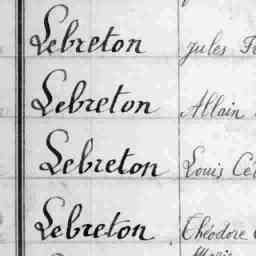 Lebreton Jules
Lebreton Allain
Lebreton Louis
Lebreton Théodore
Marie